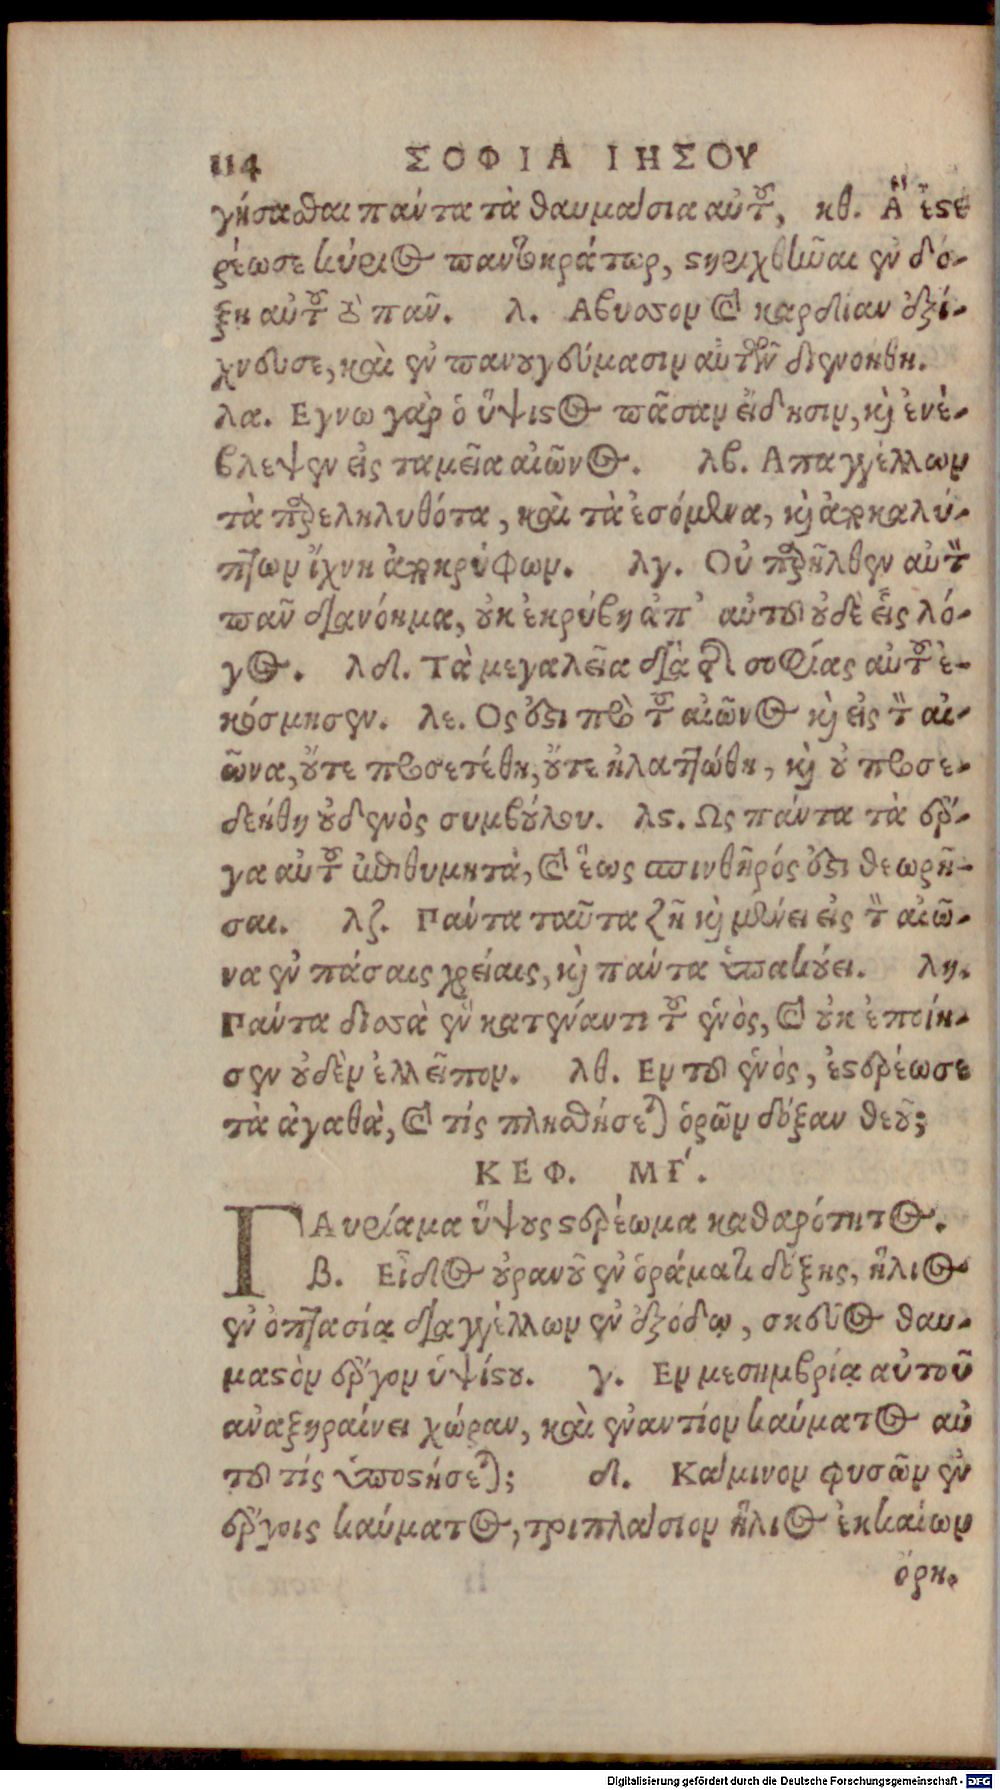 114 ΣΟΦΙΑ ΙΗΣΟΥ
γήσασθαι πάντα τὰ θαυμάσια αὐτοῦ, κθ. Ἃ ἐστε-
ρέωσε κύριος παντοκράτωρ, στηριχθῆναι ἐν δό-
ξῃ αὐτοῦ τὸ πᾶν. λ. Αβυσσον καὶ καρδίαν ἐξί-
χνευσε, καὶ ἐν πανουργεύμασιν αὐτῶν διενοήθη.
λα. Εγνω γὰρ ὁ ὕψιστος πᾶσαν εἴδησιν, καὶ ἐνέ-
βλεψεν εἰς σημεῖα αἰῶνος. λβ. Απαγγέλλων
τὰ παρεληλυθότα, καὶ τὰ ἐσόμενα, καὶ ἀποκαλύ-
πτων ἴχνη ἀποκρύφων. λγ. Οὐ παρῆλθεν αὐτὸν
πᾶν διανόημα, οὐκ ἐκρύβη ἀπ' αὐτοῦ οὐδὲ εἷς λό-
γος. λδ. Τὰ μεγαλεῖα διὰ τῆς σοφίας αὐτοῦ ἐ-
κόσμησεν. λε. Ος ἐστι πρὸ τοῦ αἰῶνος καὶ εἰς τὸν αἰ-
ῶνα, οὔτε προσετέθη, οὔτε ἠλαττώθη, καὶ οὐ προσε-
δεήθη οὐδενὸς συμβούλου. λς. Ως πάντα τὰ ἔρ-
γα αὐτοῦ ἐπιθυμητὰ, καὶ ἕως σπινθῆρός ἐστι θεωρῆ-
σαι. λζ. Πάντα ταῦτα ζῇ καὶ μένει εἰς τὸν αἰῶ-
να ἐν πάσαις χρείαις, καὶ πάντα ὑπακούει. λη.
Πάντα δισσὰ ἓν κατέναντι τοῦ ἑνὸς, καὶ οὐκ ἐποίη-
σεν οὐδὲν ἐλλεῖπον. λθ. Εν τοῦ ἑνὸς, ἐστερέωσε
τὰ ἀγαθὰ, καὶ τίς πλησθήσεται ὁρῶν δόξαν θεοῦ;
ΚΕΦ. ΜΓ΄.
ΓΑυρίαμα ὕψους στερέωμα καθαρότητος.
β. Εἶδος οὐρανοῦ ἐν ὁράματι δόξης, ἥλιος
ἐν ὀπτασίᾳ διαγγέλλων ἐν ἐξόδῳ, σκεῦος θαυ-
μαστὸν ἔργον ὑψίστου. γ. Εν μεσημβρίᾳ αὐτοῦ
ἀναξηραίνει χώραν, καὶ ἐναντίον καύματος αὐ
τοῦ τίς ὑποστήσεται; δ. Κάμινον φυσῶν ἐν
ἔργοις καύματος, τριπλάσιον ἥλιος ἐκκαίων
ὄρη.
Digitalisierung gefördert durch die Deutsche Forschungsgemeinschaft - DFG